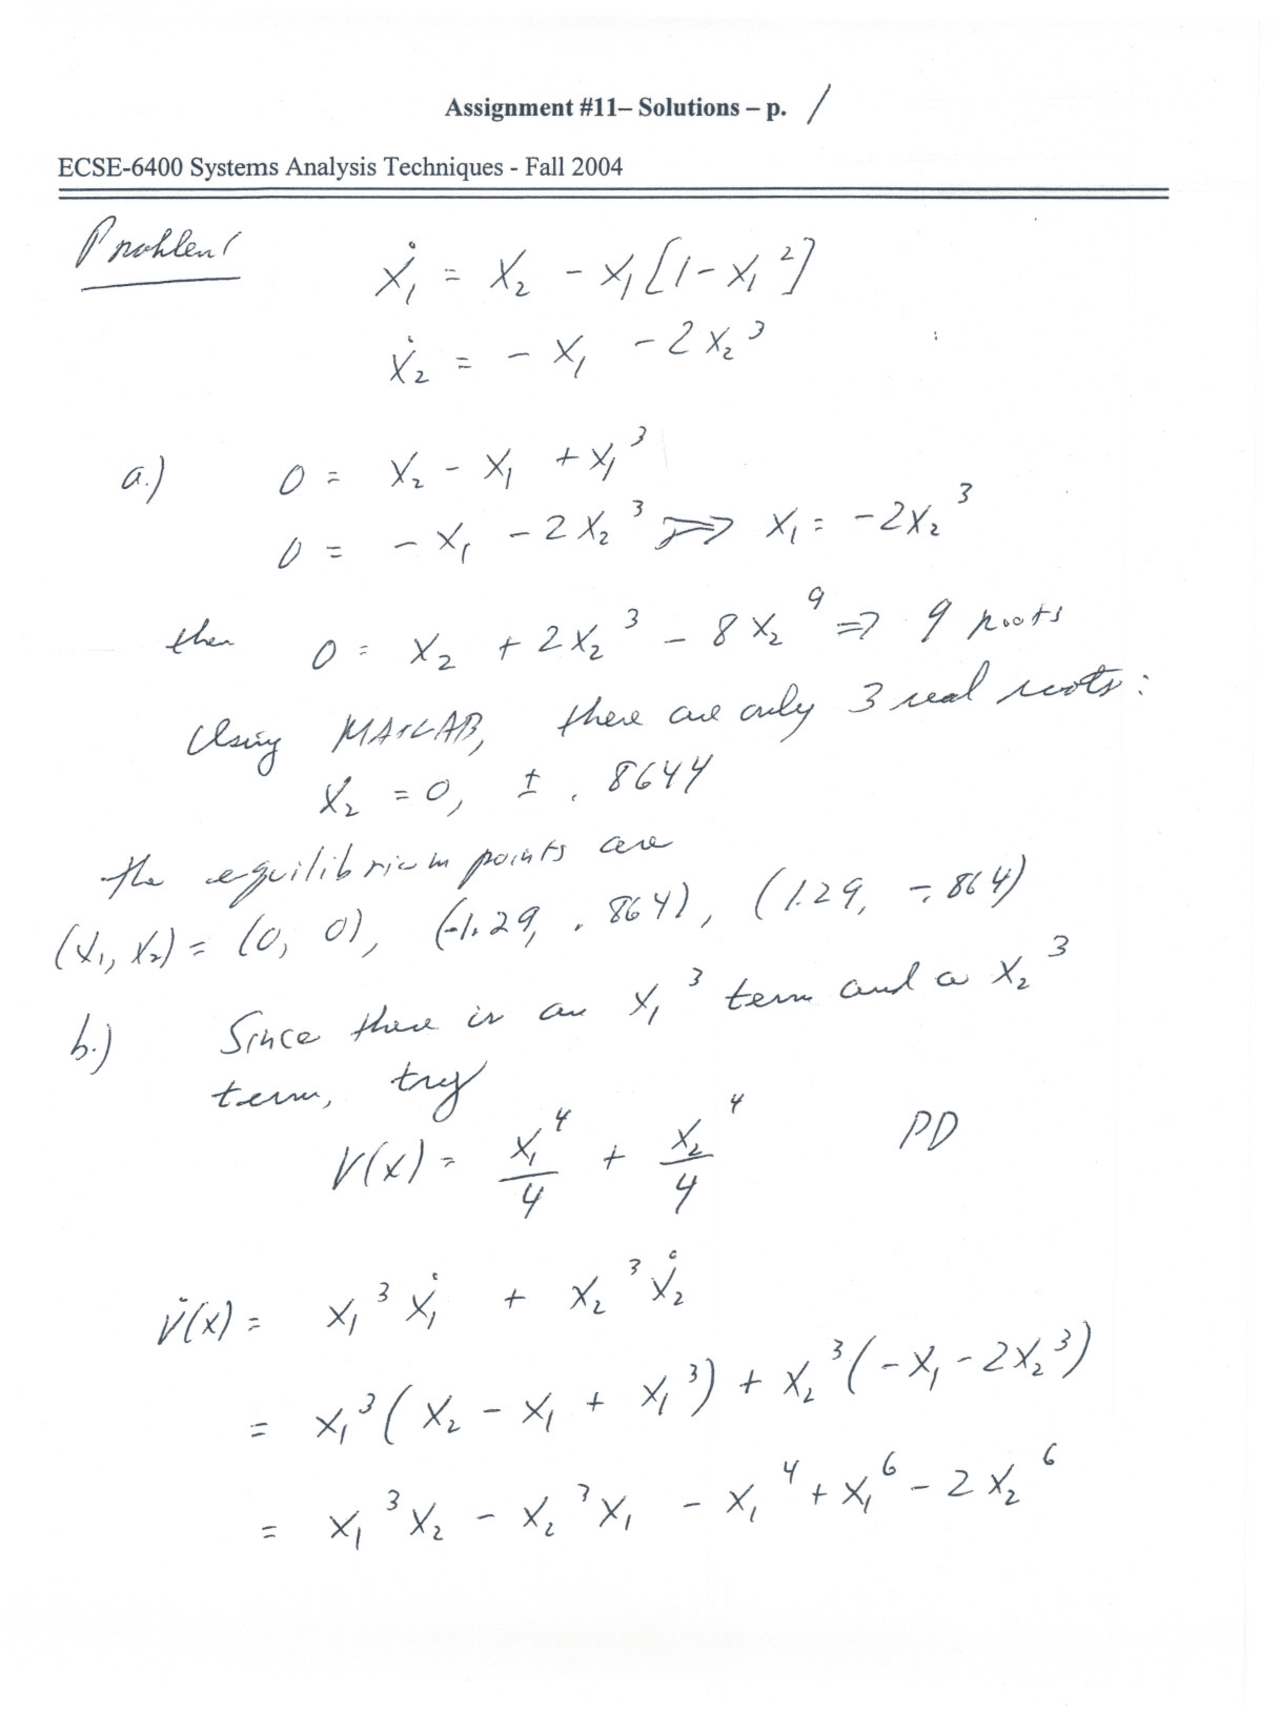 Assignment #11– Solutions – p. 1
ECSE-6400 Systems Analysis Techniques - Fall 2004
Problem 1
ẋ₁ = x₂ - x₁[1-x₁²]
ẋ₂ = -x₁ -2x₂³
a.) 0 = x₂ - x₁ + x₁³
0 = -x₁ -2x₂³ ⇒ x₁ = -2x₂³
then 0 = x₂ + 2x₂³ - 8x₂⁹ ⇒ 9 roots
Using MATLAB, there are only 3 real roots:
x₂ = 0, ± .8644
the equilibrium points are
(x₁, x₂) = (0, 0), (-1.29, .864), (1.29, -.864)
b.) Since there is an x₁³ term and a x₂³
term, try
V(x) = x₁⁴/4 + x₂⁴/4 PD
V̇(x) = x₁³ẋ₁ + x₂³ẋ₂
= x₁³(x₂ - x₁ + x₁³) + x₂³(-x₁ -2x₂³)
= x₁³x₂ - x₂³x₁ - x₁⁴ + x₁⁶ - 2x₂⁶